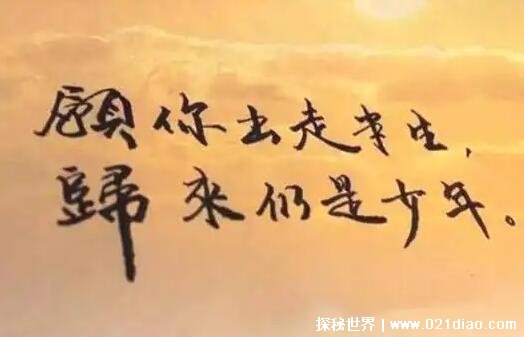 願你出走半生,
歸來仍是少年。
探秘世界 | www.021diao.com